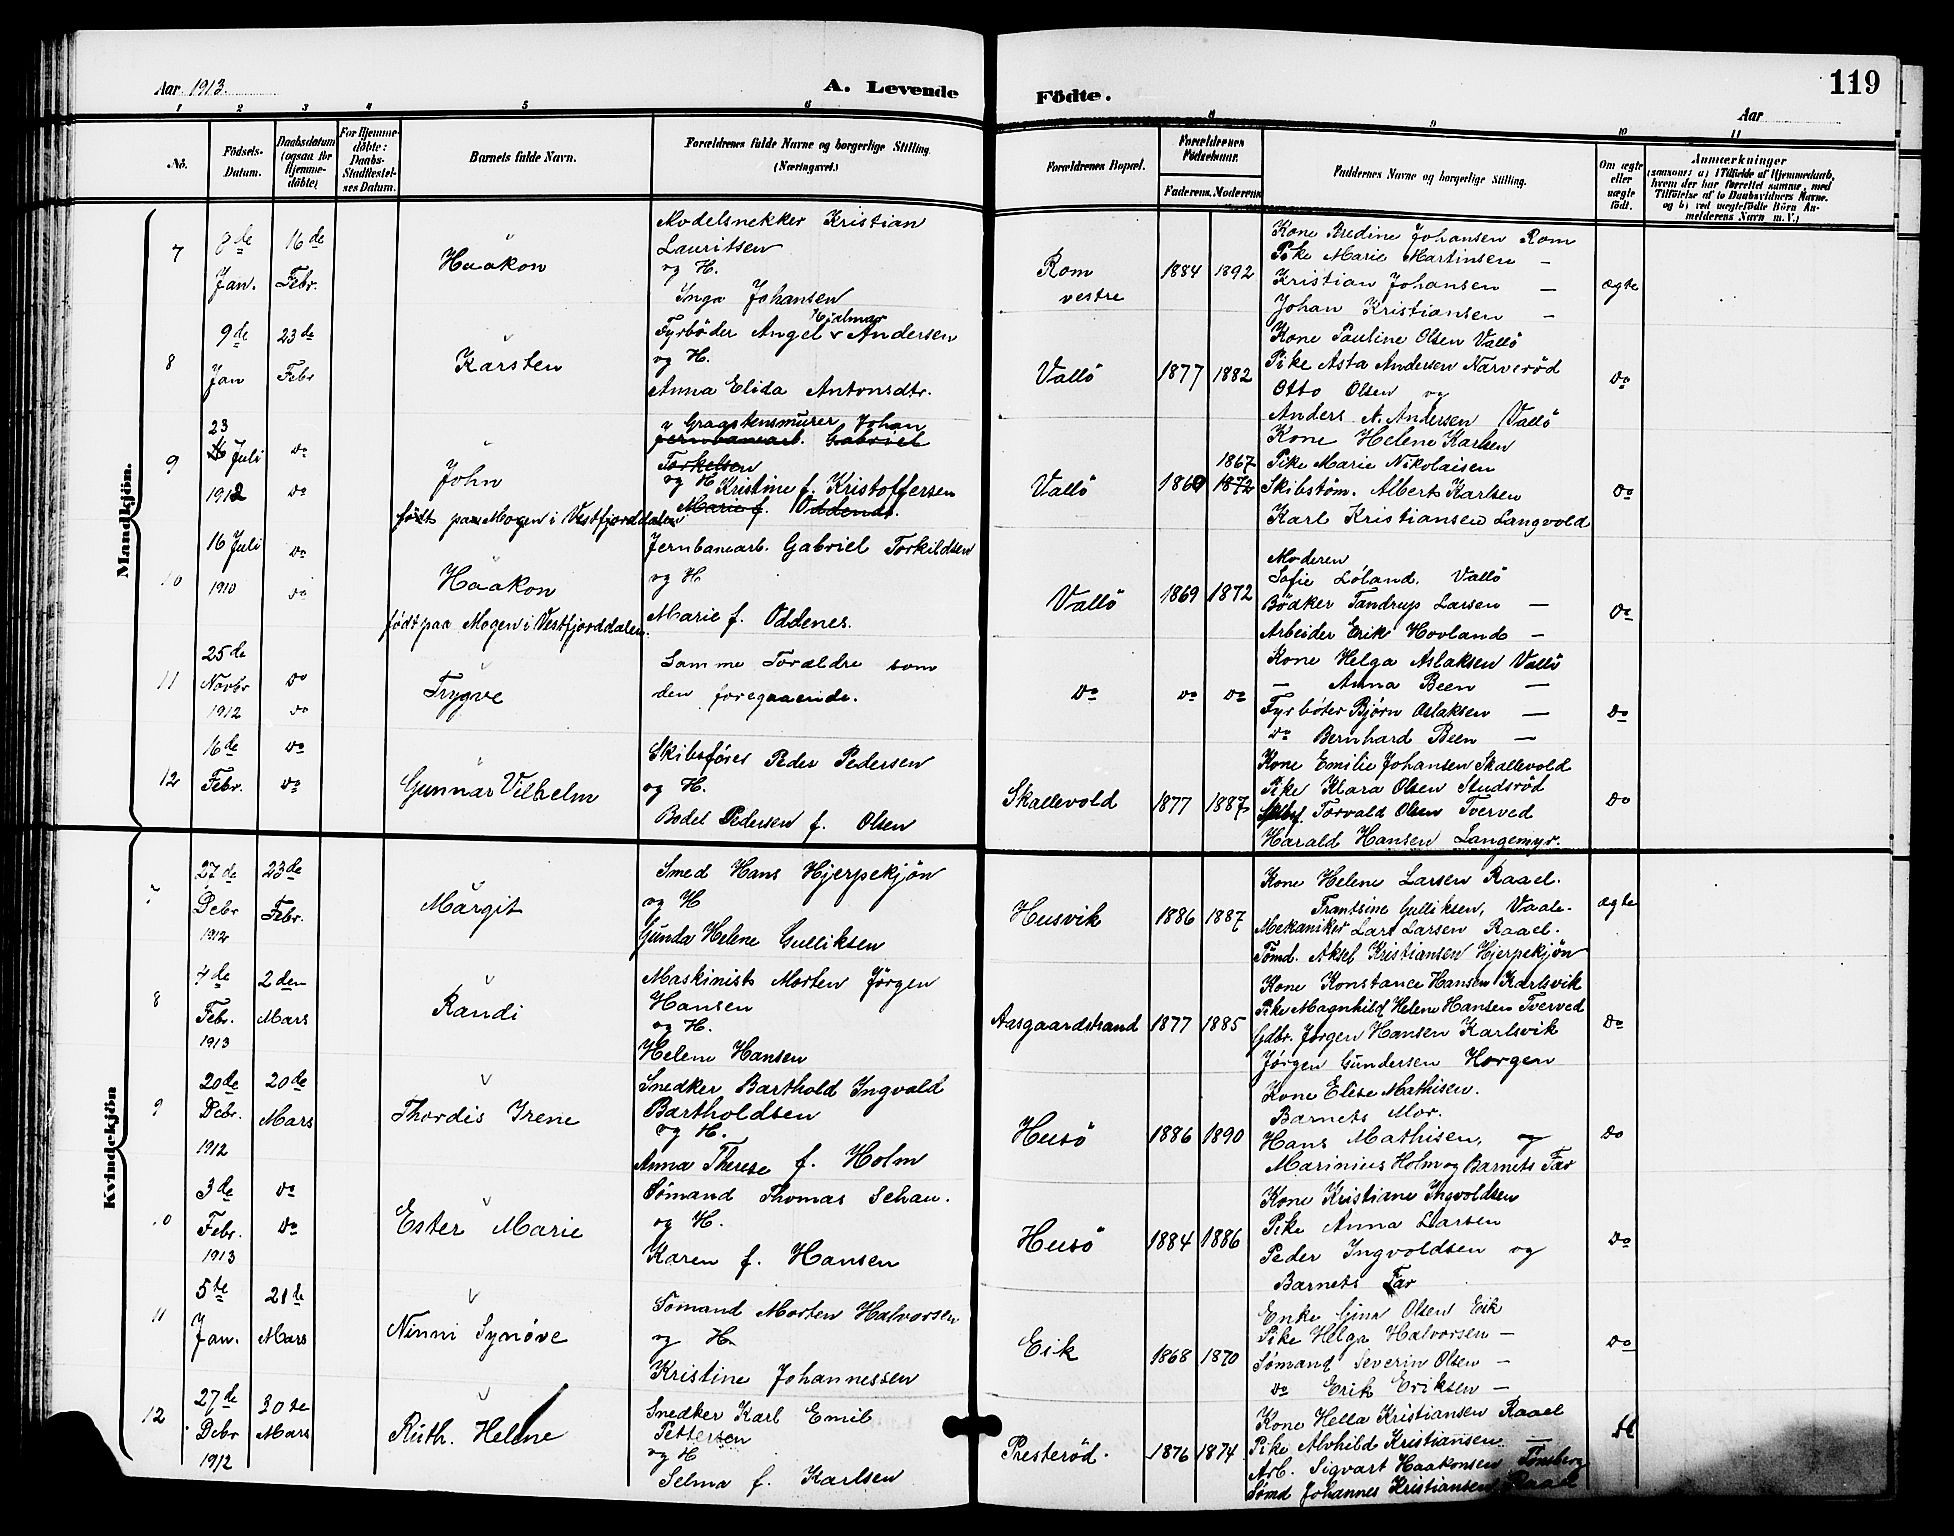 Aar 1913.
A. Levende
Födte.
Aar
119
1 2 3 4 5 6 8 9 10 11
No.
Födsels-Datum.
Daabsdatum (ogsaa for Hjemmedöbte)
For Hjemmedöbte: Daabs-Stadfæstelses Datum.
Barnets fulde Navn.
Forældrenes fulde Navne og borgerlige Stilling. (Næringsvei.)
Forældrenes Bopæl.
Forældrenes Födselsaar.
Faderens. Moderens
Faddernes Navne og borgerlige Stilling.
Om ægte eller uægte födt.
Anmærkninger
(saasom: a) i Tilfælde af Hjemmedaab, hvem der har forrettet samme, med Tilföielse af to Daabsvidners Navne, og b) ved uægtefödte Börn Anmelderens Navn m. V.)
Mandkjön.
7
8de Jan.
16de Febr.
Haakon
Modelsnekker Kristian
Lauritsen
og H.
Inga Johansen
Rom vestre
1884 1892
Kone Bredine Johansen Rom
Pike Marie Martinsen —
Kristian Johansen —
Johan Kristiansen —
ægte
8
9de Jan
23de Febr
Karsten
Hjalmar
Fyrbøder Angel v Andersen
og H.
Anna Elida Antonsdtr.
Vallö
1877 1882
Kone Pauline Olsen Vallö
Pike Asta Andersen Narverød
Otto Olsen og
Anders A. Andersen Vallö
do
9
23
Juli
1912
do
do
John
født paa Mogen i Vestfjorddalen
v Graastensmurer Johan
Jernbanearb. Gabriel
Torkelsen
og H Kristine f. Kristoffersen
Marie f. Oddenes.
Vallö
1867
1872
Kone Helene Karlsen
Pike Marie Nikolaisen
Skibstøm. Albert Karlsen
Karl Kristiansen Langvold
do
10
16 Juli
1910
do
do
Haakon
født paa Mogen i Vestfjorddalen.
Jernbanearb. Gabriel Torkildsen
og H
Marie f. Oddenes.
Vallö
1869 1872
Moderen
Sofie Løland. Vallö
Bödker Tandrup Larsen —
Arbeider Erik Hovland —
do
11
25de
Novbr
1912
do
do
Trygve
Samme Foræld­re som
den foregaaende.
do
do do
Kone Helga Aslaksen Vallö
— Anna Been —
Fyrbøter Bjørn Oslaksen —
do Bernhard Been —
do
12
16de
Febr.
do
do
Gunnar Vilhelm
Skibsfører Peder Pedersen
og H.
Bodel Pedersen f. Olsen
Skallevold
1877 1887
Kone Emilie Johansen Skallevold
Pike Klara Olsen Studsrød
Torvald Olsen Tverved
Harald Hansen Langemyr.
do
Kvindekjön
7
27de
Debr
1912
23de
Febr.
Margit
Smed Hans Hjerpekjøn
og H
Gunda Helene Gulliksen
Husvik
1886 1887
Kone Helene Larsen Raael.
Trantsine Gulliksen, Vaale-
Mekaniker Lars Larsen Raael.
Tømd. Aksel Kristiansen Hjerpekjøn
ægte
8
4de
Febr.
1913
2den
Mars
Randi
Maskinist Morten Jörgen
Hansen
og H.
Helene Hansen
Aasgaardstrand
1877 1885
Kone Konstance Hansen Karlsvik
Pike Magnhild Helene Hansen Tverved
Gdbr. Jørgen Hansen Karlsvik
Jørgen Gundersen Horgen
do
9
20de
Debr.
1912
20de
Mars
Thordis Irene
Snedker Barthold Ingvald
Bartholdsen
og H.
Anna Therese f. Holm
Husö
1886 1890
Kone Elise Mathisen.
Barnets Mor.
Hans Mathisen, og
Marinius Holm og Barnets Far
do
10
3de
Febr.
1913
do
do
Ester Marie
Sømand Thomas Schau.
og H.
Karen f. Hansen
Husö
1884 1886
Kone Kristiane Ingvoldsen
Pike Anna Larsen
Peder Ingvoldsen og
Barnets Far
do
11
5te
Jan.
21de
Mars
Ninni Synöve
Sømand Morten Halvorsen
og H
Kristine Johannessen
Eik
1868 1870
Enke Gina Olsen Eik
Pike Helga Halvorsen —
Sømand Severin Olsen —
do Erik Eriksen —
do
12
27de
Debr
1912
30te
Mars
Ruth. Helene
Snedker Karl Emil
Pettersen
og H
Selma f. Karlsen
Presterød.
1876 1874
Kone Hella Kristiansen Raael
Pike Alvhild Kristiansen —
Arb. Sigvart Haakonsen Tønsberg
Sømd Johannes Kristiansen Raael